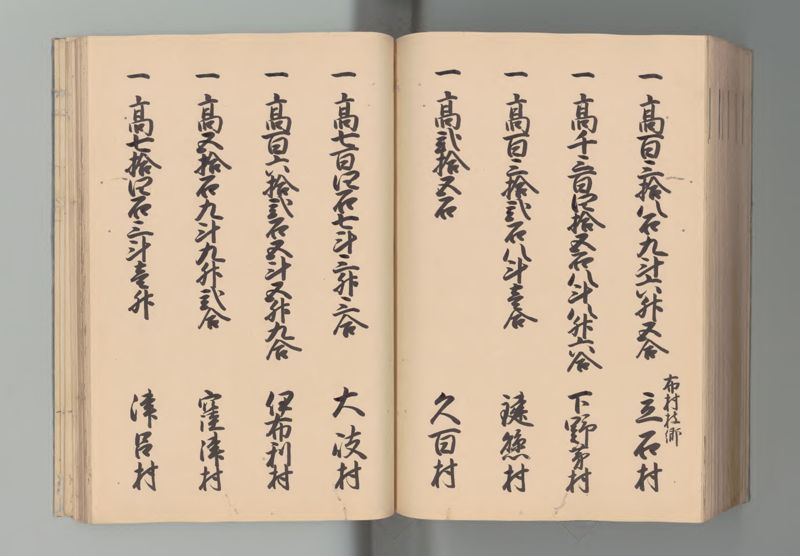 一 高百三拾八石九斗六升五合 布村枝郷 立石村
一 高千三百四拾五石八斗八升六合 下野茅村
一 高百三拾弐石八斗壱合 鍵懸村
一 高弐拾五石 久百村
一 高七百四石七斗三升三合 大岐村
一 高百六拾弐石五斗五升九合 伊布利村
一 高五拾石九斗九升弐合 窪津村
一 高七拾四石三斗壱升 津呂村